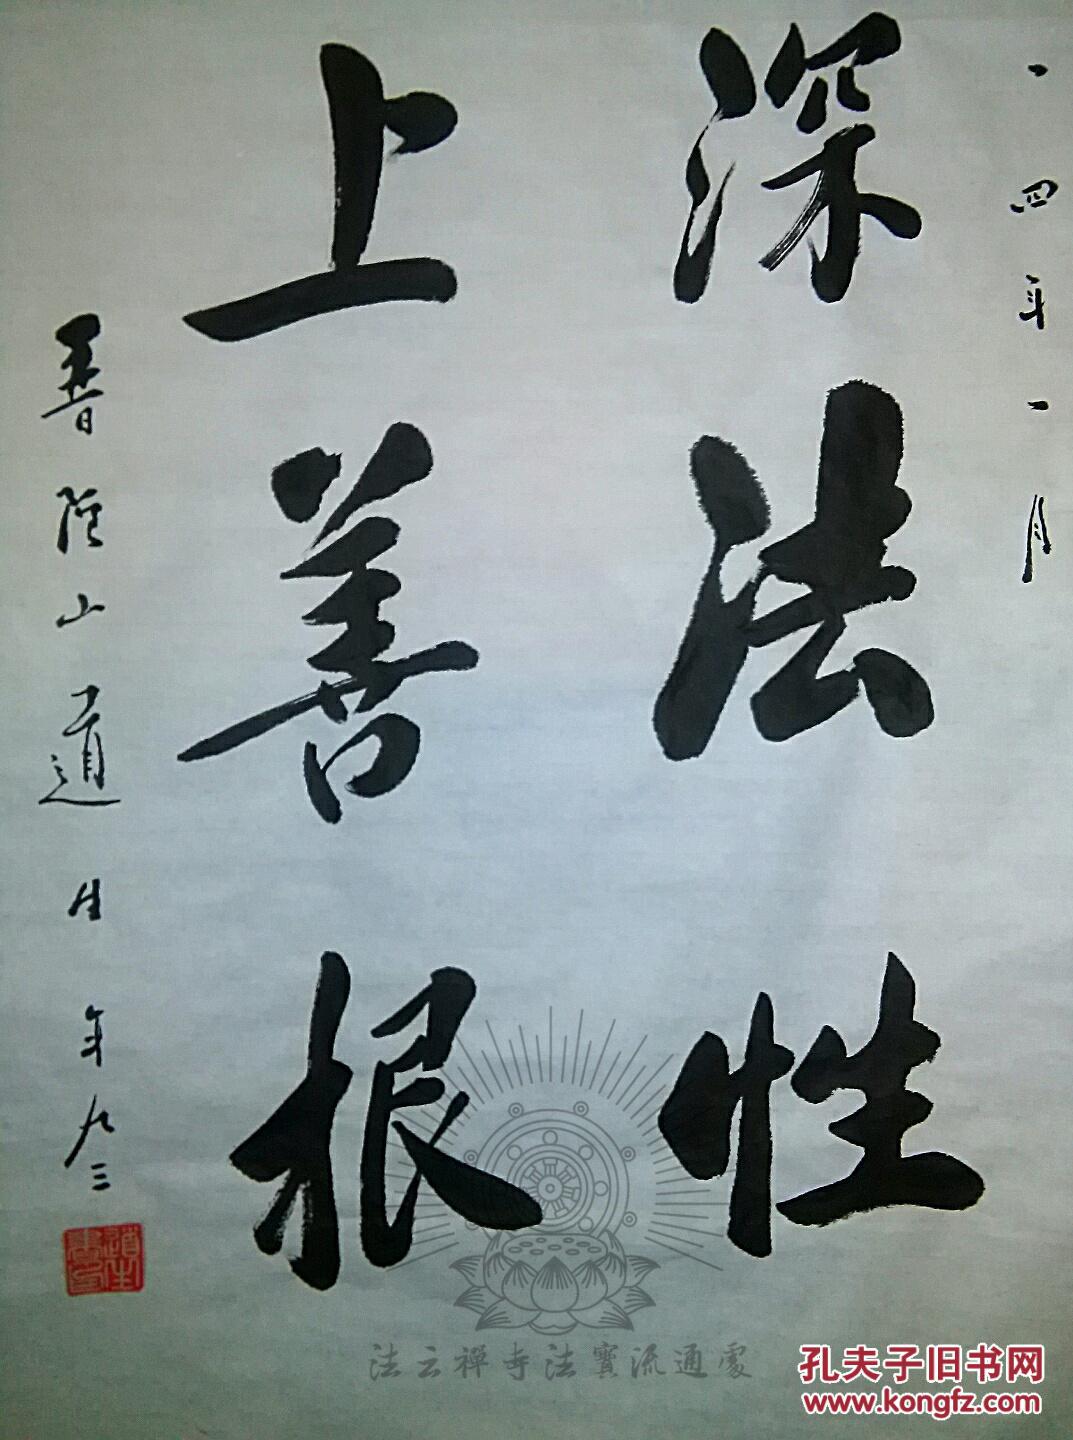 一四年一月
深法性
上善根
普陀山道生年九三
道生書印
法云禪寺法寶流通處
孔夫子旧书网
www.kongfz.com